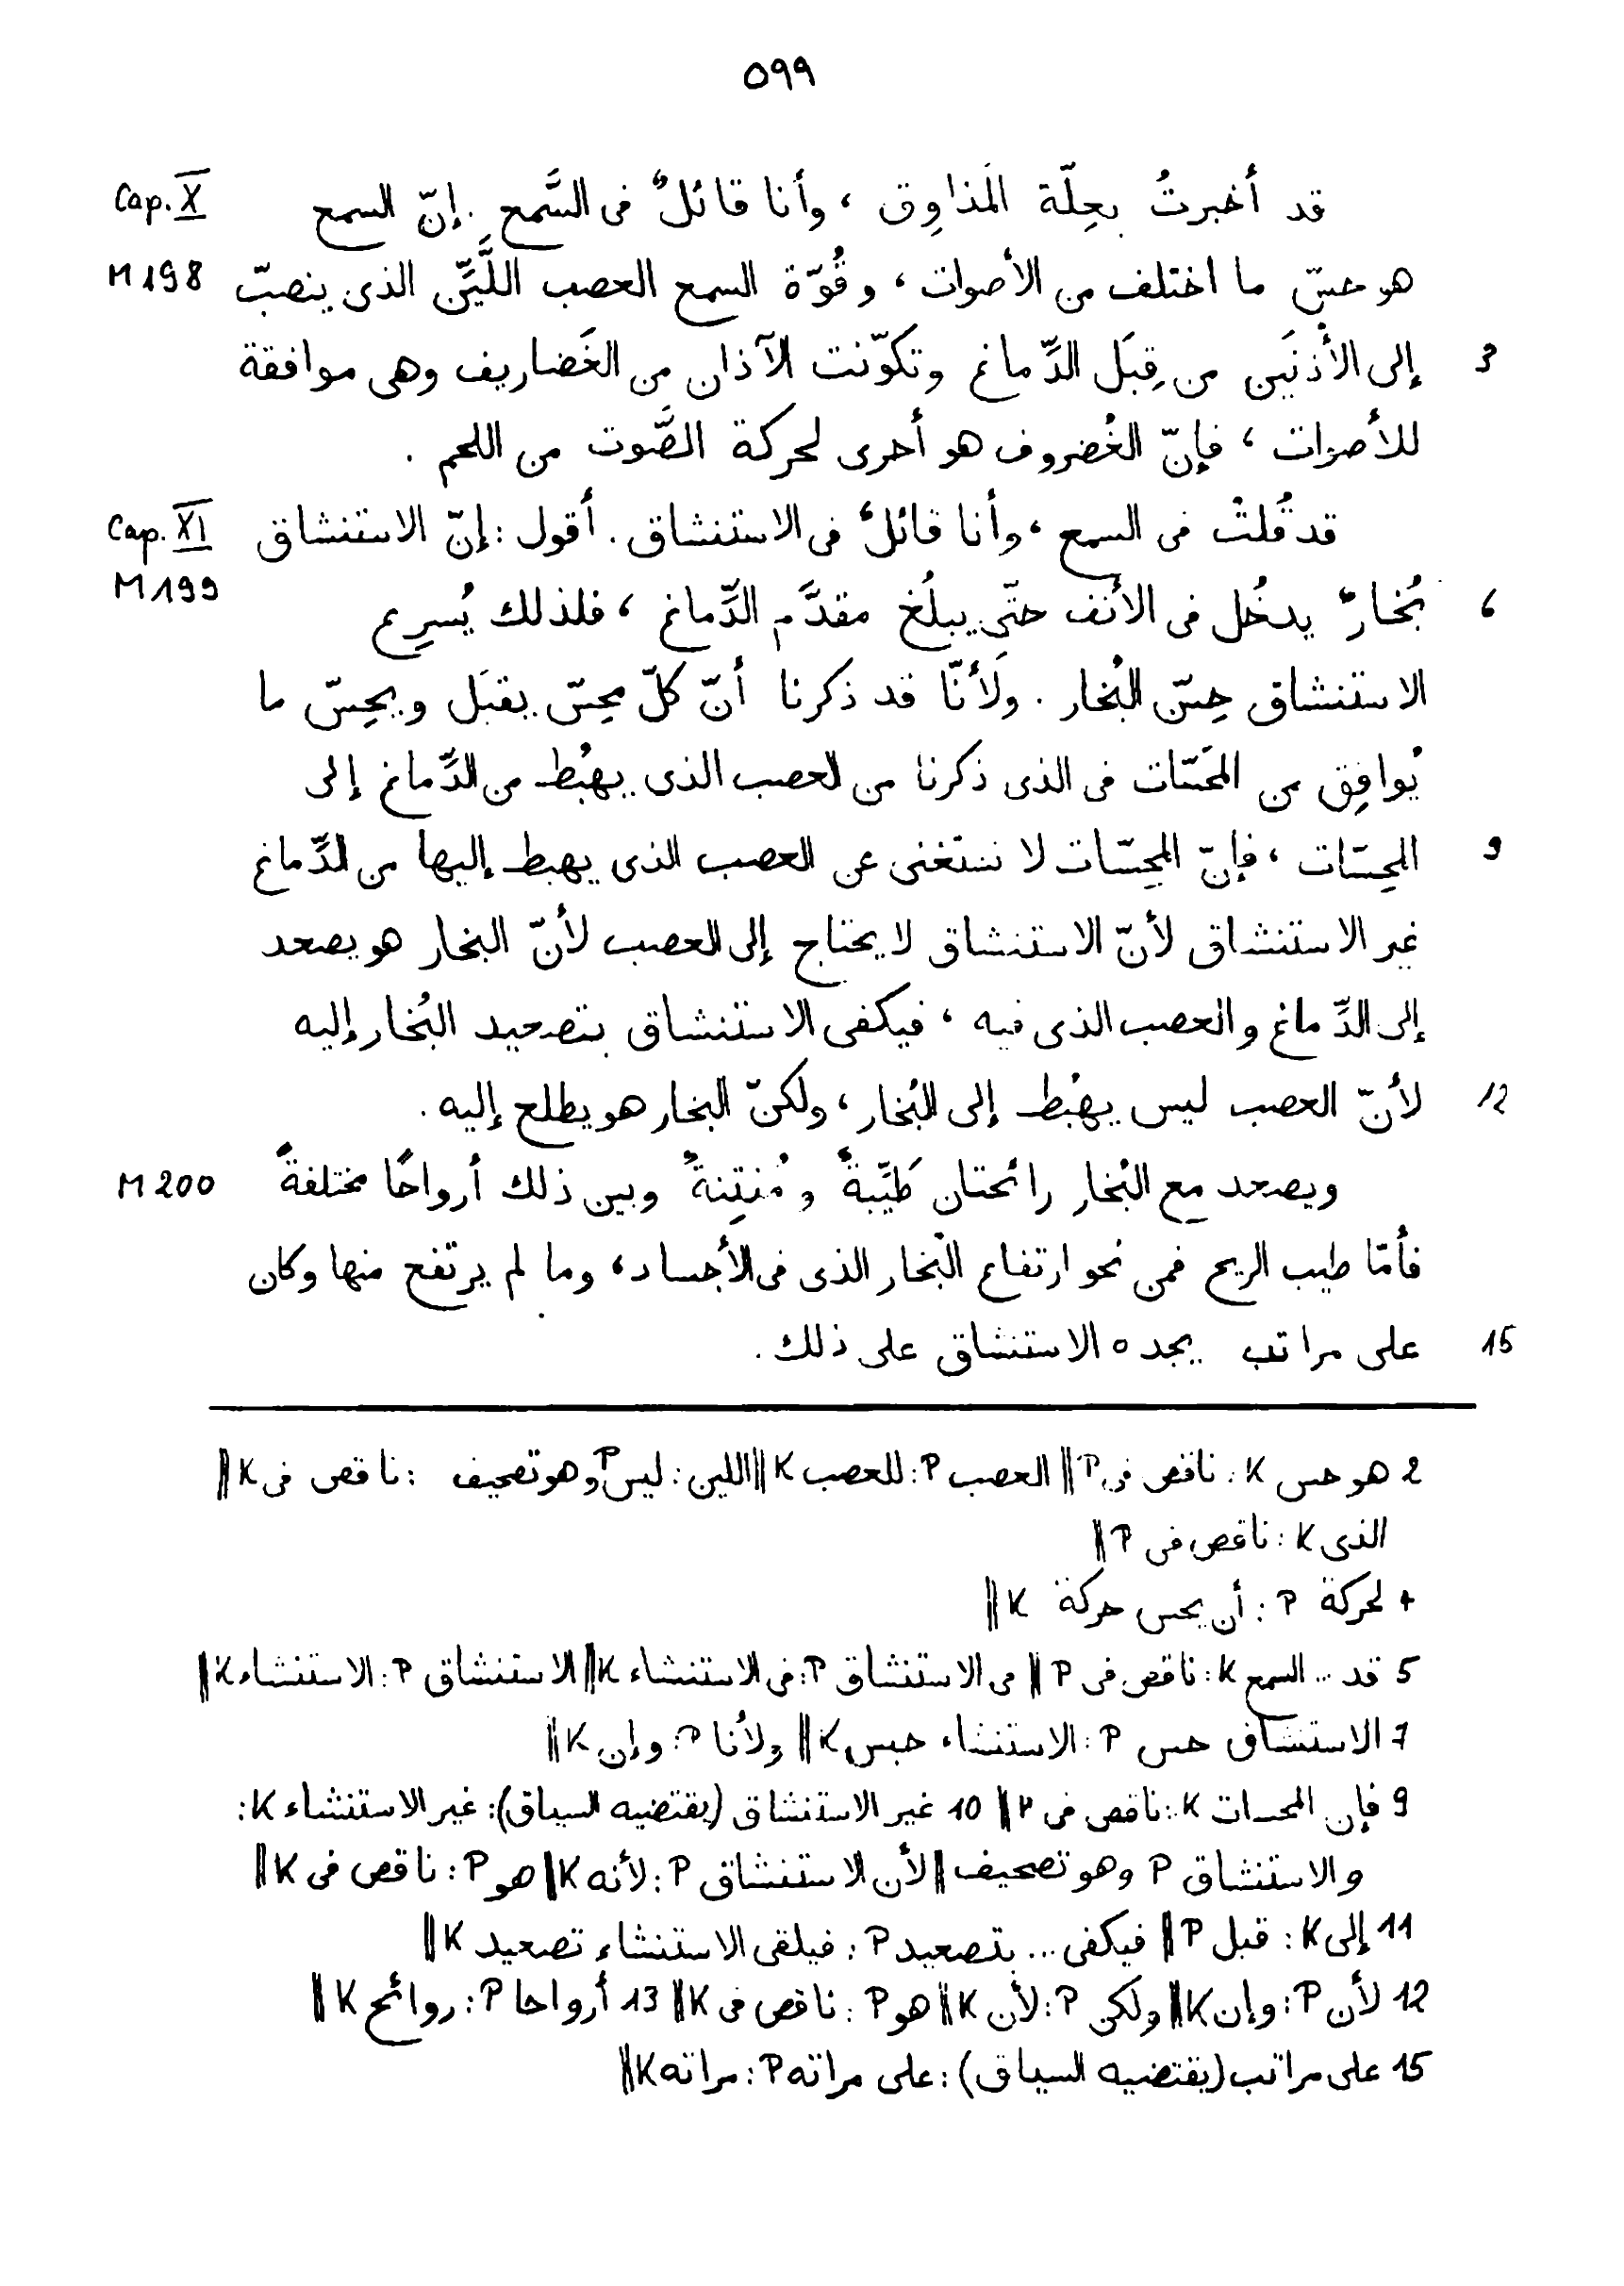 ٥٩٩
Cap. X قد أخبرتُ بعِلّة المَذاوِق ، وأنا قائلٌ فى السَّمع . إنّ السمع
M 198 هو حسّ ما اختلف من الأصوات ، وقُوّة السمع العصب اللَّيِّن الذى ينصبّ
3 إلى الأُذنَين من قِبَل الدِّماغ وتكوّنت الآذان من الغَضاريف وهى موافقة
للأصوات ، فإنّ الغُضروف هو أحرى لحركة الصَّوت من اللحم .
Cap. XI قد قُلتُ فى السمع ، وأنا قائلٌ فى الاستنشاق . أقول : إنّ الاستنشاق
M 199
6 بُخارٌ يدخُل فى الأنف حتّى يبلُغ مقدَّم الدِّماغ ، فلذلك يُسرِع
الاستنشاق حِسّ البُخار . ولَأنّا قد ذكرنا أنّ كلّ محِسّ يقبَل ويحِسّ ما
يُوافِق من المحَسّات فى الذى ذكرنا من العصب الذى يهبُط من الدِّماغ إلى
9 المحِسّات ، فإنّ المحِسّات لا تستغنى عن العصب الذى يهبط إليها من الدِّماغ
غير الاستنشاق لأنّ الاستنشاق لا يحتاج إلى العصب لأنّ البخار هو يصعد
إلى الدِّماغ والعصب الذى فيه ، فيكفى الاستنشاق بتصعيد البُخار إليه
12 لأنّ العصب ليس يهبُط إلى البُخار ، ولكنّ البخار هو يطلع إليه .
M 200 ويصعد مع البُخار رائحتان طَيِّبةً ومُنتِنةً وبين ذلك أرواحًا مختلفةً
فأمّا طيب الريح فمن نحو ارتفاع البُخار الذى فى الأجساد ، وما لم يرتفع منها وكان
15 على مراتب يجده الاستنشاق على ذلك .
2 هو حس K : ناقص فى P || العصب P : للعصب K || اللين : ليس P وهو تصحيف : ناقص فى K ||
الذى K : ناقص فى P ||
4 لحركة P : أن يحس حركة K ||
5 قد ... السمع K : ناقص فى P || فى الاستنشاق P : فى الاستنشاء K || الاستنشاق P : الاستنشاء K ||
7 الاستنشاق حس P : الاستنشاء حبس K || ولأنا P : وإن K ||
9 فإن المحسات K : ناقص فى P || 10 غير الاستنشاق (يقتضيه السياق) : غير الاستنشاء K :
والاستنشاق P وهو تصحيف || لأن الاستنشاق P : لأنه K || هو P : ناقص فى K ||
11 إلى K : قبل P || فيكفى ... بتصعيد P : فيلقى الاستنشاء تصعيد K ||
12 لأن P : وإن K || ولكن P : لأن K || هو P : ناقص فى K || 13 أرواحا P : روائح K ||
15 على مراتب (يقتضيه السياق) : على مراته P : مراته K ||